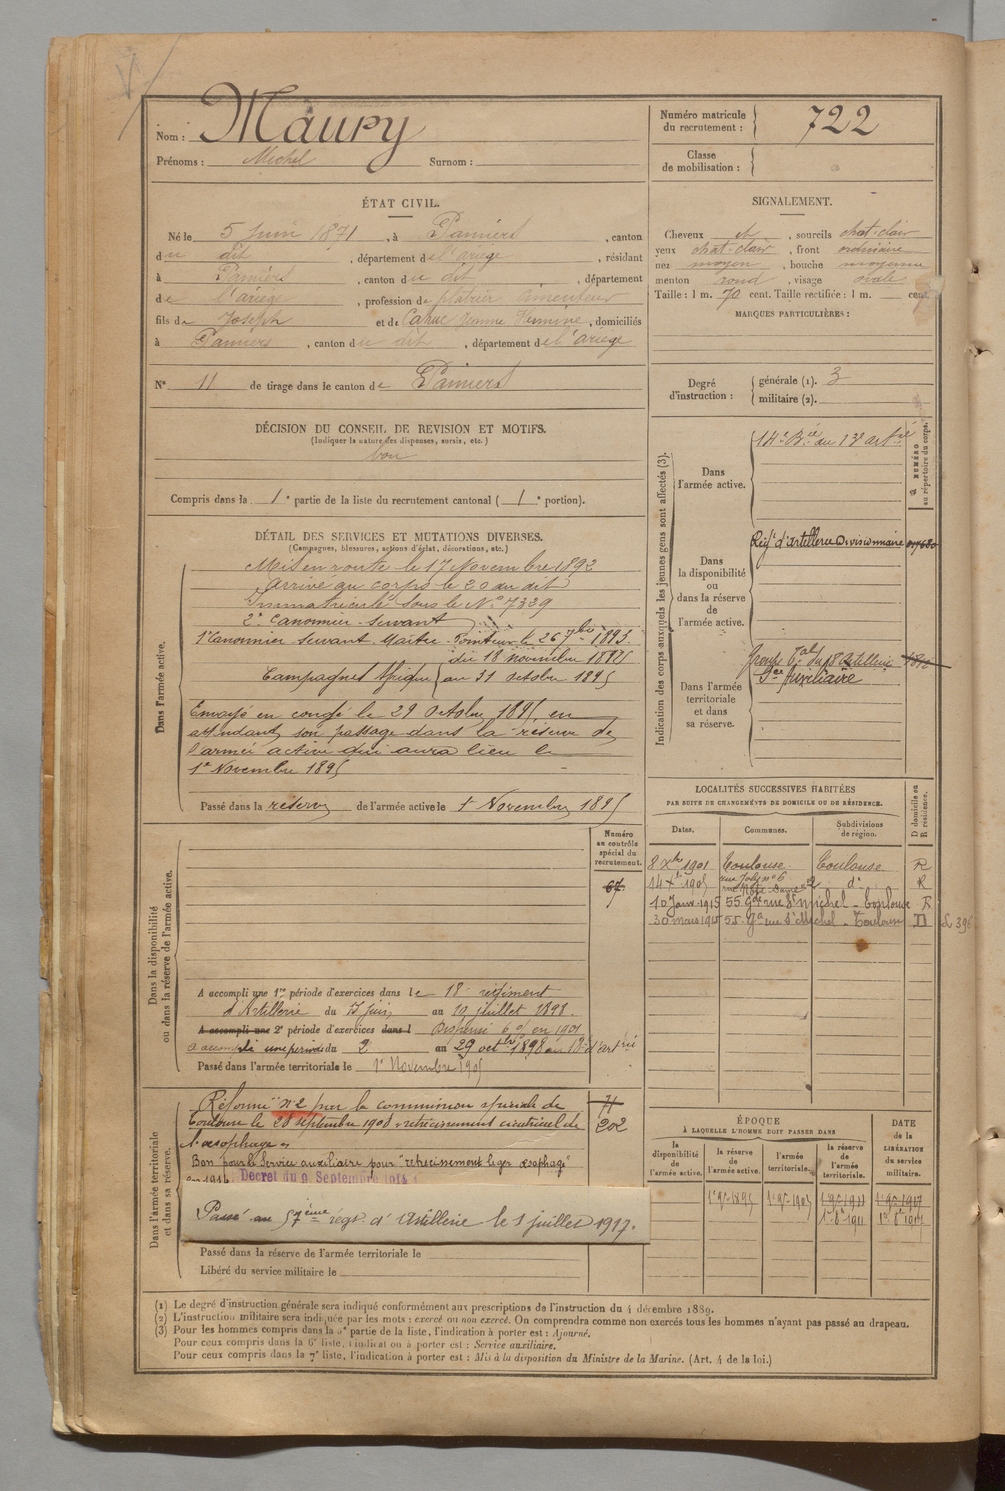 Nom : Maury
Prénoms : Michel Surnom :
Numéro matricule du recrutement : 722
Classe de mobilisation :
ÉTAT CIVIL.
Né le 5 Juin 1871, à Pamiers, canton
du dit, département de l'ariège, résidant
à Pamiers, canton du dit, département
de l'ariège, profession de platrier cimenteur
fils de Joseph et de Cahuc Jeanne Hermine, domiciliés
à Pamiers, canton du dit, département de l'ariège
N° 11 de tirage dans le canton de Pamiers
SIGNALEMENT.
Cheveux et, sourcils chat-clair
yeux chat-clair, front ordinaire
nez moyen, bouche moyenne
menton rond, visage ovale
Taille : 1 m. 70 cent. Taille rectifiée : 1 m. cent.
MARQUES PARTICULIÈRES :
Degré d'instruction :
générale (1). 3
militaire (2).
DÉCISION DU CONSEIL DE REVISION ET MOTIFS.
(Indiquer la nature des dispenses, sursis, etc.)
bon
Compris dans la 1e partie de la liste du recrutement cantonal (1e portion).
DÉTAIL DES SERVICES ET MUTATIONS DIVERSES.
(Campagnes, blessures, actions d'éclat, décorations, etc.)
Dans l'armée active.
Mis en route le 17 Novembre 1892
arrivé au corps le 20 au dit
Immatriculé sous le N° 7339
2e Canonnier servant
1er Canonnier servant Maître-Pointeur le 26 7bre 1893.
Campagnes Afrique du 18 novembre 1892
au 31 octobre 1895
Envoyé en congé le 29 Octobre 1895, en
attendant son passage dans la réserve de
l'armée active qui aura lieu le
1er Novembre 1895
Passé dans la réserve de l'armée active le 1er Novembre 1895
Indication des corps auxquels les jeunes gens sont affectés (3).
NUMÉRO au répertoire du corps.
Dans l'armée active.
14e Bie du 13e artie
Dans la disponibilité ou dans la réserve de l'armée active.
Régt d'Artillerie Divisionnaire
Dans l'armée territoriale et dans sa réserve.
Groupe tal du 18 Artillerie
Sce Auxiliaire
LOCALITÉS SUCCESSIVES HABITÉES
PAR SUITE DE CHANGEMENTS DE DOMICILE OU DE RÉSIDENCE.
Dates. Communes. Subdivisions de région. D domicile ou R résidence.
8 Xbre 1901 Toulouse Toulouse R
rue n° 6
14 Xbre 1905 rue Notre-Dame 2 d° R
10 Janv 1915 55 Gde rue St Michel - Toulouse R
30 mars 1915 55 Gde rue St Michel - Toulouse D
Dans la disponibilité ou dans la réserve de l'armée active.
Numéro au contrôle spécial du recrutement.
67
A accompli une 1re période d'exercices dans le 18e régiment
d'Artillerie du 13 juin au 10 juillet 1898.
A accompli une 2e période d'exercices dans l Dispensé en 1901
a accompli une période du 2 au 29 octbre 1898 au 18e d'artrie
Passé dans l'armée territoriale le 1er Novembre 1905
Dans l'armée territoriale et dans sa réserve.
71
202
Réformé n°2 par la commission spéciale de
Toulouse le 28 septembre 1908 "rétrécissement cicatriciel de
l'œsophage"
Bon pour le Service auxiliaire pour "rétrécissement léger œsophage"
Décret du 9 Septembre 1914
Passé au 57ème régt d'Artillerie le 1 juillet 1917.
Passé dans la réserve de l'armée territoriale le
Libéré du service militaire le
ÉPOQUE
À LAQUELLE L'HOMME DOIT PASSER DANS
DATE de la LIBÉRATION du service militaire.
la disponibilité de l'armée active. la réserve de l'armée active. l'armée territoriale. la réserve de l'armée territoriale.
1er 9bre 1895 1er 9bre 1905 1er 9bre 1911 1er 9bre 1917
1er 8bre 1911 1er 8bre 1917
(1) Le degré d'instruction générale sera indiqué conformément aux prescriptions de l'instruction du 4 décembre 1889.
(2) L'instruction militaire sera indiquée par les mots : exercé ou non exercé. On comprendra comme non exercés tous les hommes n'ayant pas passé au drapeau.
(3) Pour les hommes compris dans la 5e partie de la liste, l'indication à porter est : Ajourné.
Pour ceux compris dans la 6e liste, l'indication à porter est : Service auxiliaire.
Pour ceux compris dans la 7e liste, l'indication à porter est : Mis à la disposition du Ministre de la Marine. (Art. 4 de la loi.)